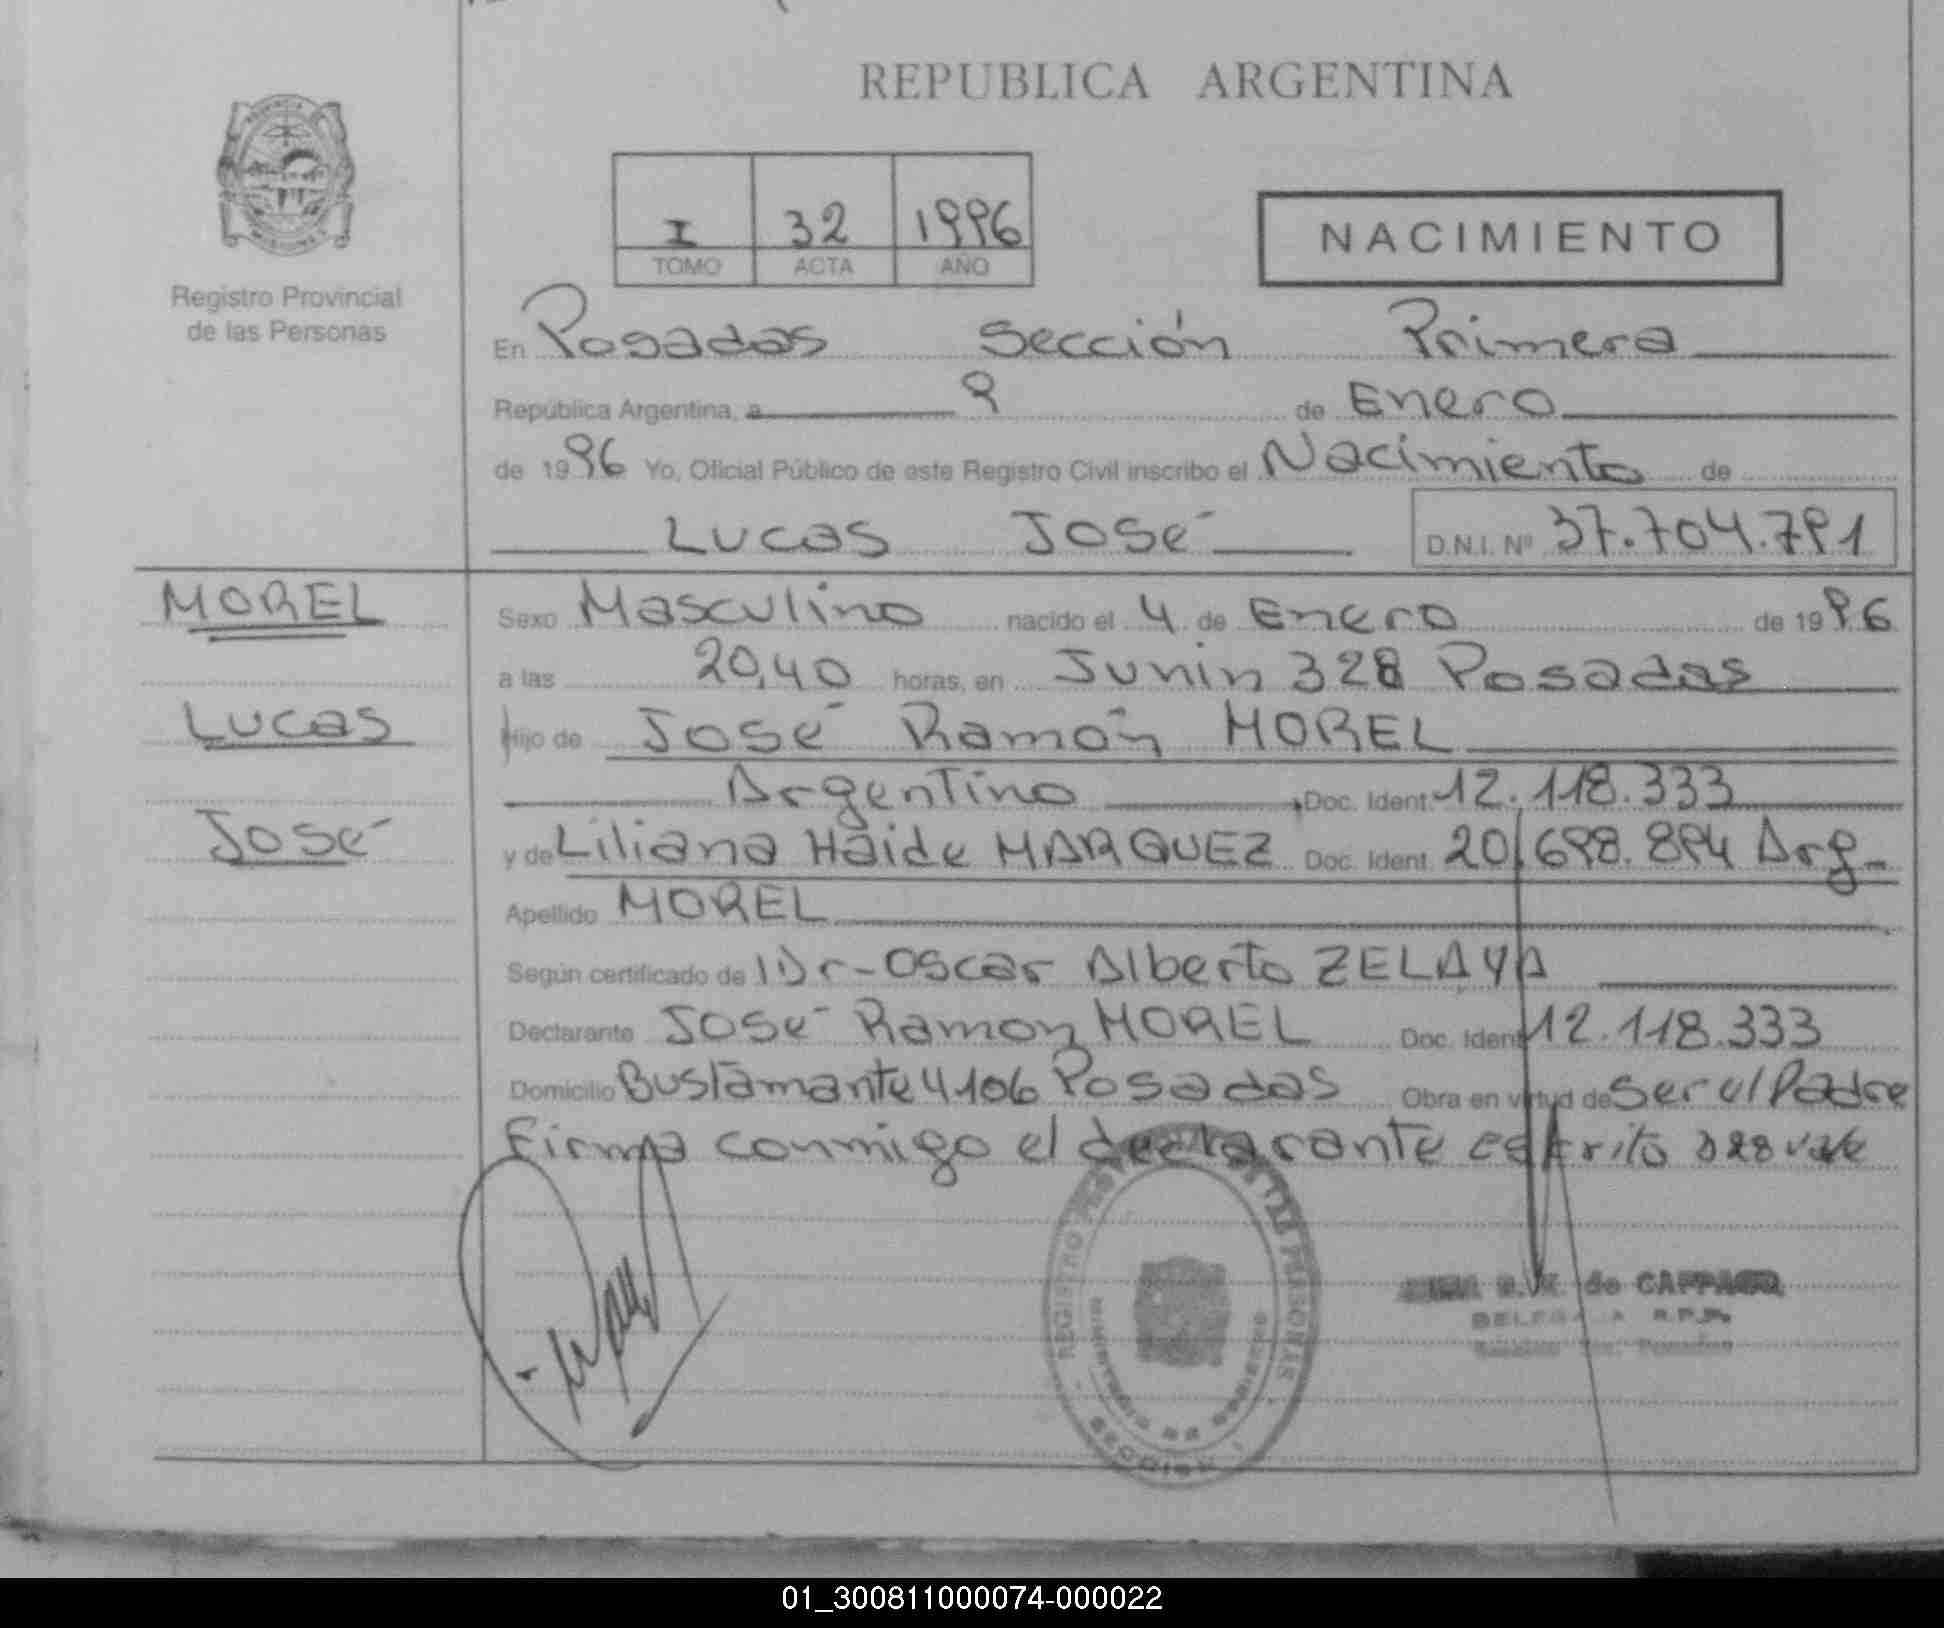 REPUBLICA ARGENTINA
I 32 1996
TOMO ACTA AÑO
NACIMIENTO
Registro Provincial
de las Personas
En Posadas Sección Primera
República Argentina, a 9 de Enero
de 1996 Yo, Oficial Público de este Registro Civil inscribo el Nacimiento de
Lucas José D.N.I. Nº 37.704.791
MOREL
Lucas
José
Sexo Masculino nacido el 4 de Enero de 1996
a las 20,40 horas, en Junin 328 Posadas
Hijo de José Ramón MOREL
Argentino Doc. Ident. 12.118.333
y de Liliana Haide MARQUEZ Doc. Ident. 20.698.894 Arg-
Apellido MOREL
Según certificado de Dr-Oscar Alberto ZELAYA
Declarante José Ramon MOREL Doc. Ident. 12.118.333
Domicilio Bustamante 4106 Posadas Obra en virtud de ser el Padre
Firma conmigo el declarante escrito 328 vale
REGISTRO DE LAS PERSONAS
MINISTERIO DE GOBIERNO
de
01_300811000074-000022